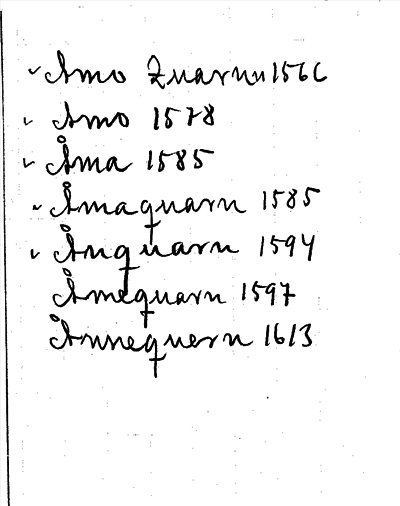 Amo Quarnn 1566
Amo 1578
Åma 1585
Åmaquarn 1585
Ånquarn 1594
Åmequarn 1597
Ånnequern 1613